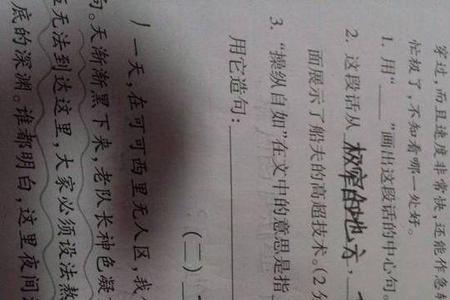 穿过,而且速度非常快,还能作急转
忙极了,不知看哪一处好。
1. 用“____”画出这段话的中心句。
2. 这段话从 极窄的地方 ,
面展示了船夫的高超技术。(2分
3. “操纵自如”在文中的意思是指
用它造句:
(二)
一天,在可可西里无人区,我
句。天渐渐黑下来,老队长神色凝
无法到达这里,大家必须设法熬
底的深渊。谁都明白,这里夜间